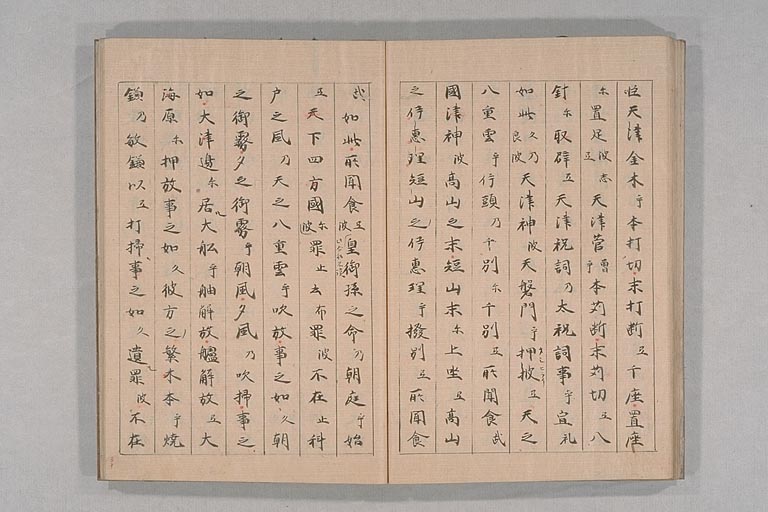 㞍天津金木乎本打切末打断弖千座置座
尓置足波志弖天津菅曽乎本苅断末苅切弖八
針尓取辟弖天津祝詞乃太祝詞事乎宣礼
如此久乃良波天津神波天磐門乎押披弖天之
八重雲乎伊頭乃千別尓千別弖所聞食武
國津神波高山之末短山末尓上坐弖高山
之伊惠理短山之伊惠理乎撥別弖所聞食
武如此所聞食弖波皇御孫之命乃朝庭乎始
弖天下四方國尓波罪止云布罪波不在止科
戸之風乃天之八重雲乎吹放事之如久朝
之御霧夕之御霧乎朝風夕風乃吹掃事之
如大津邊尓居大舩乎舳解放艫解放弖大
海原尓押放事之如久彼方之繁木本乎焼
鎌乃敏鎌以弖打掃事之如久遺罪波不在